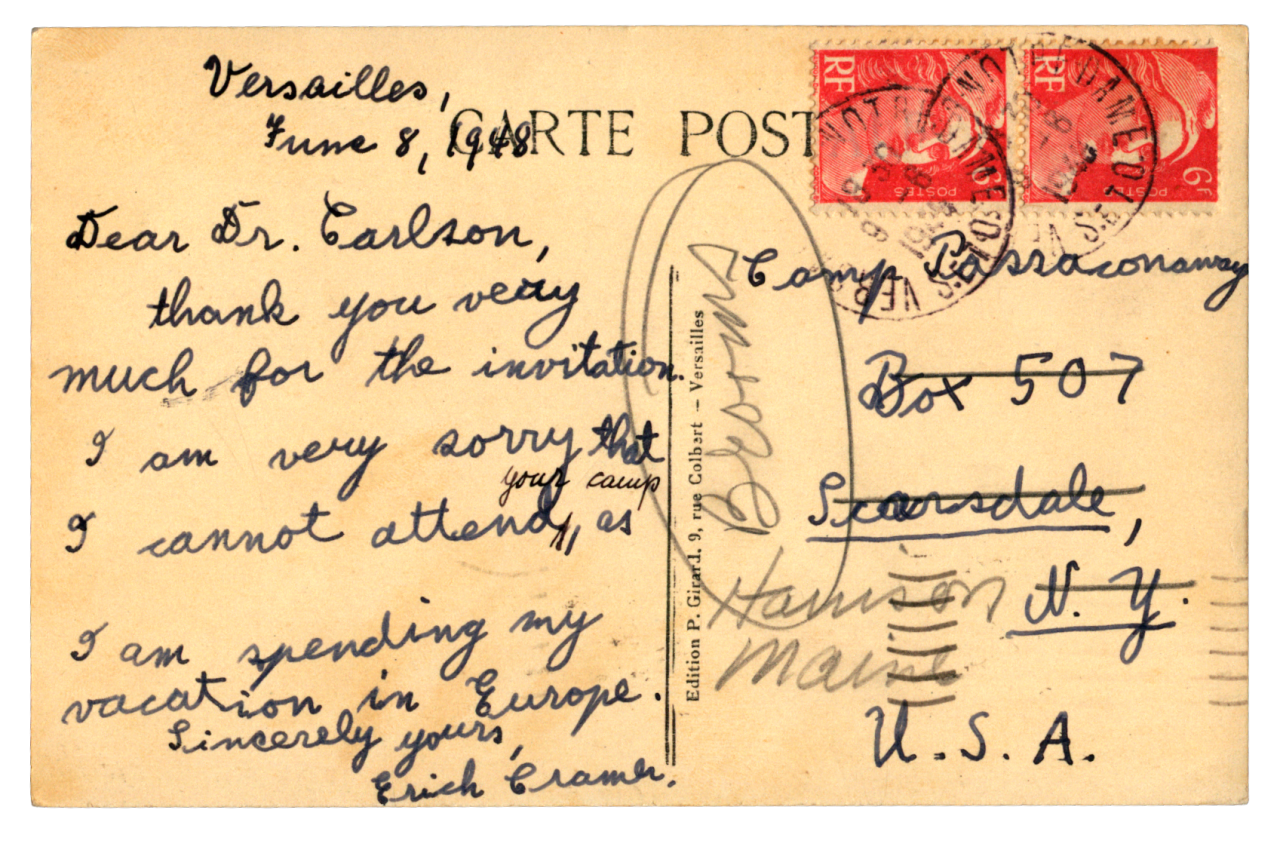 Versailles,
June 8, 1948
CARTE POST
Dear Dr. Carlson,
thank you very
much for the invitation.
I am very sorry that
your camp
I cannot attend, as
I am spending my
vacation in Europe.
Sincerely yours,
Erich Cramer.
Edition P. Girard. 9, rue Colbert – Versailles
RF
POSTES
6F
RF
POSTES
6F
NOTRE DAME
VERS
S.& O.
NOTRE DAME
S.& O.
Camp Passaconaway
Box 507
Scarsdale,
N. Y.
U. S. A.
Harrison
Maine